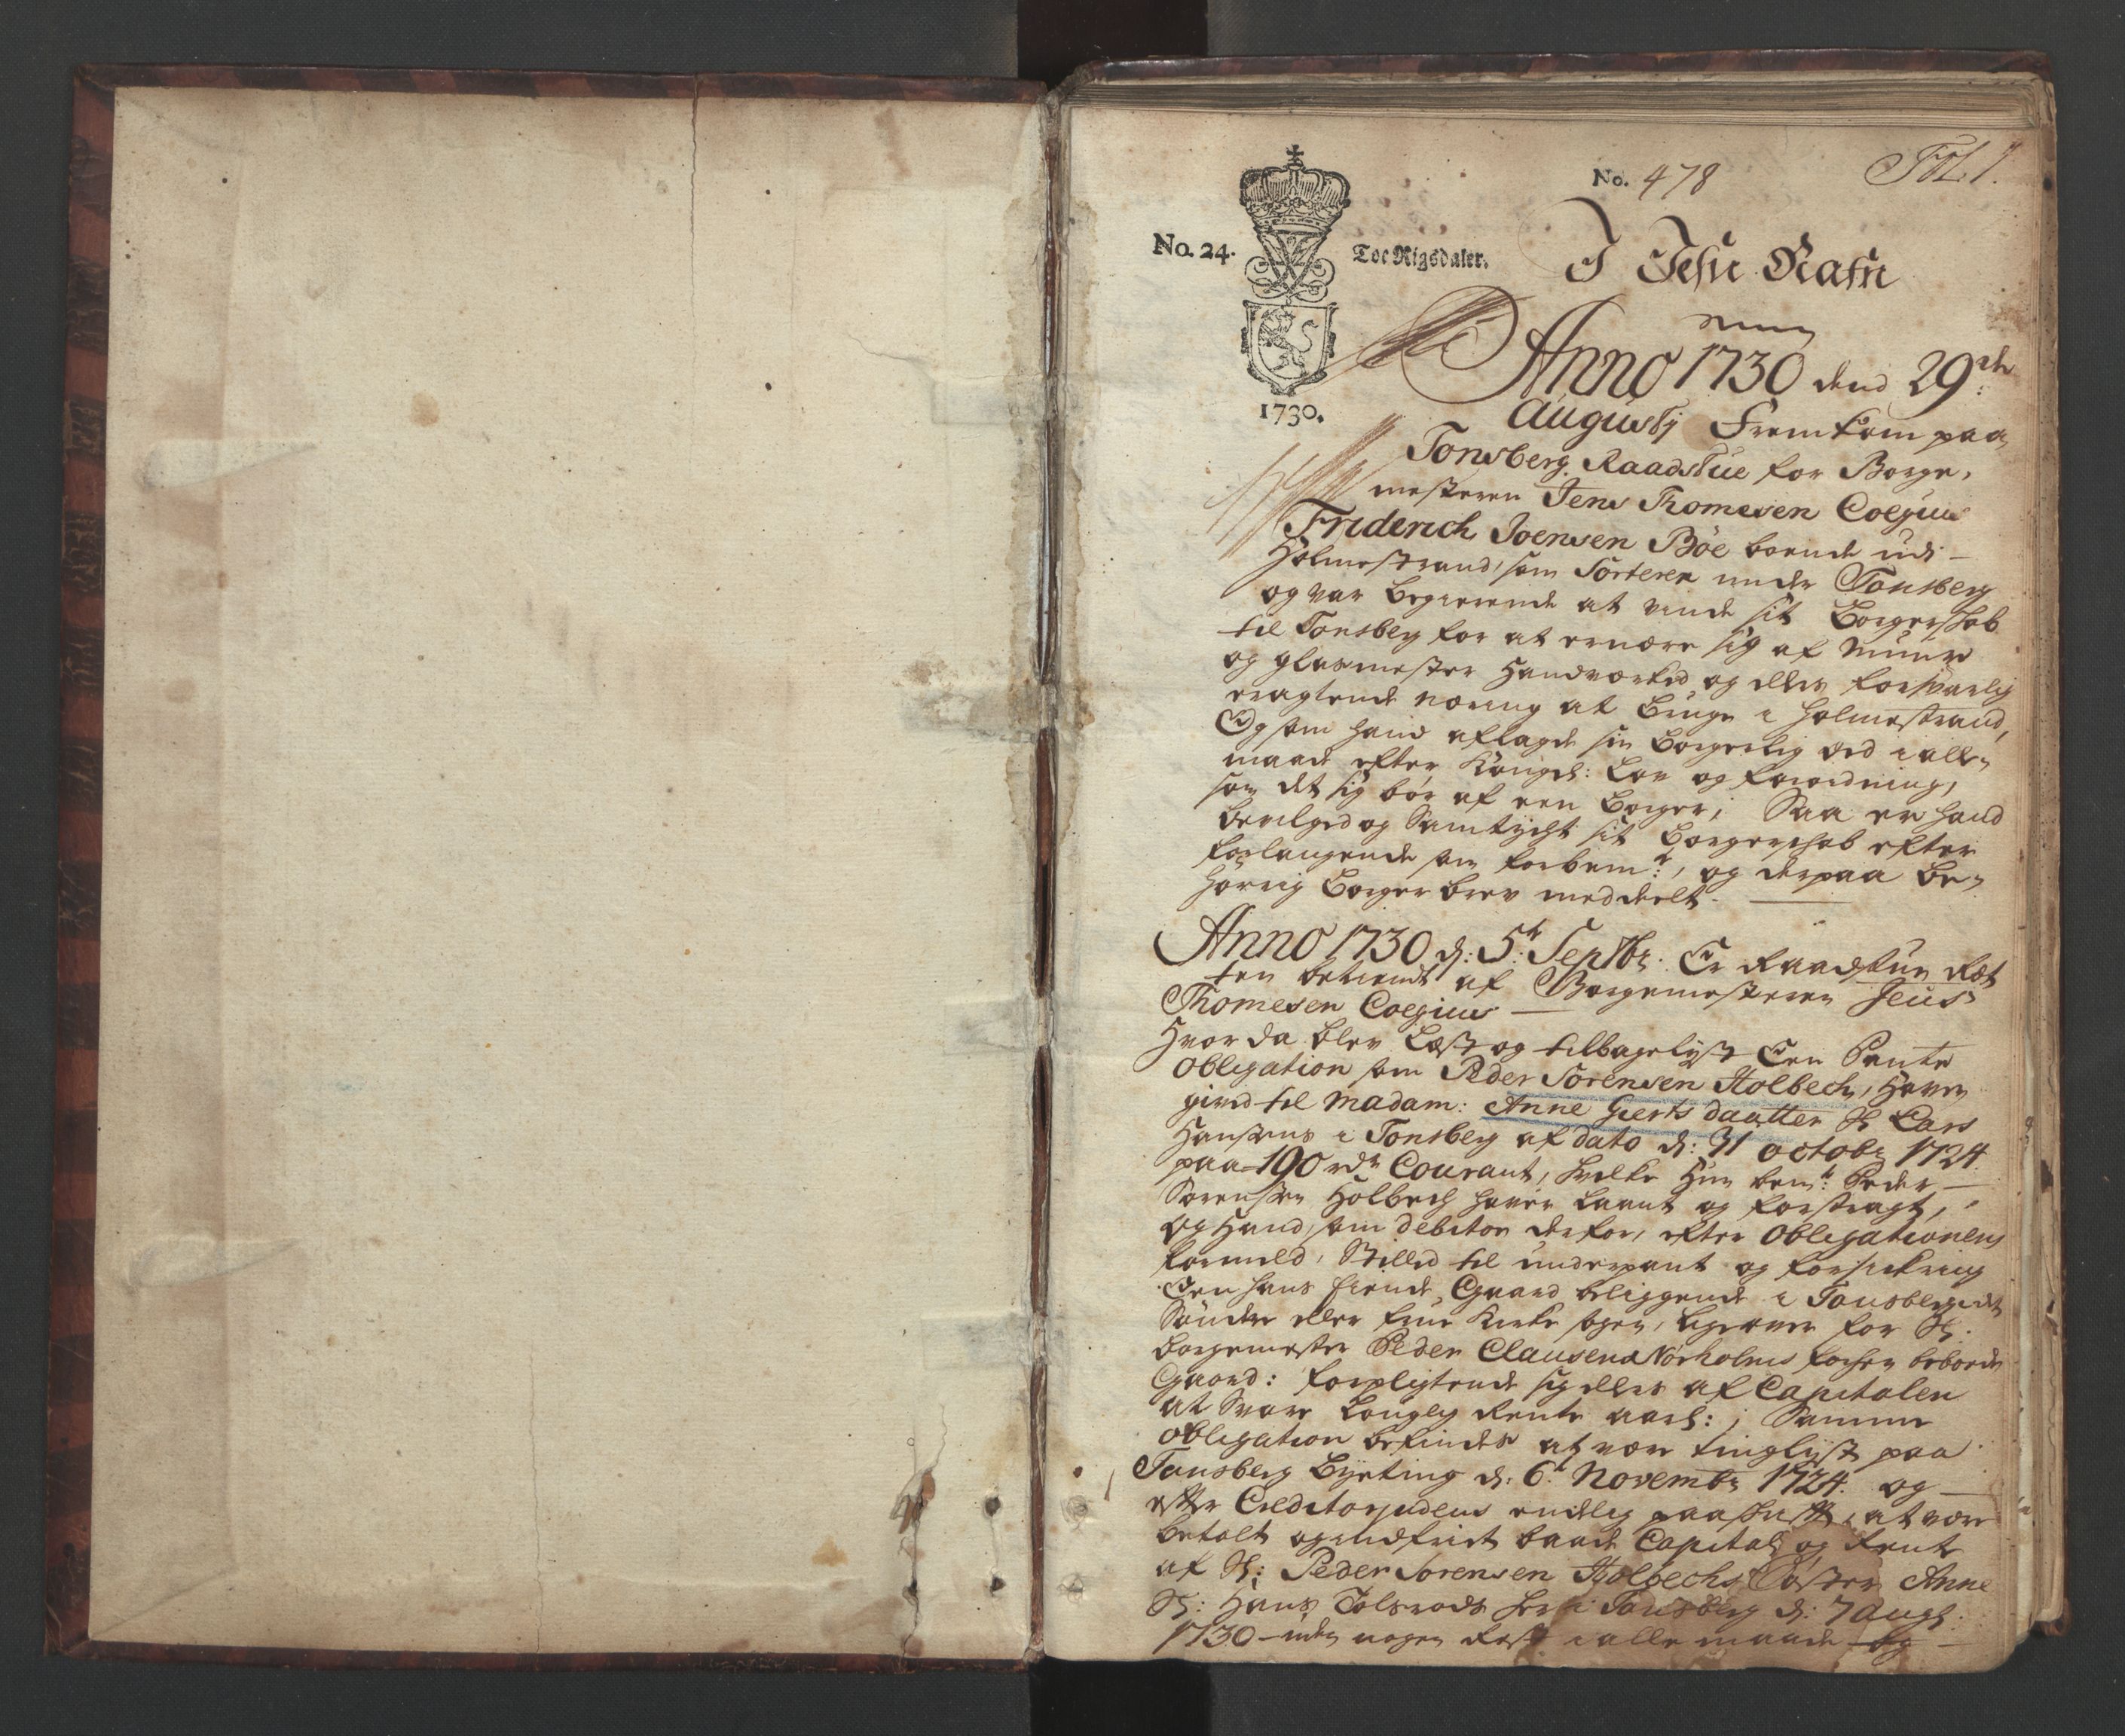 No. 478
Fol. 1.
No. 24.
Toe Rigsdaler.
1730.
I Jesu Nafn
Anno 1730 dend 29de
Augusty Fremkom paa
Tonsberg Raadstue for Borge,
mesteren Jens Thomesen Coegius
Friderich Joensen Böe boende udi
Holmestrand, som Sorterer under Tonsberg
og var begierende at vinde sit Borgerskab
til Tonsberg for at ernære sig af Muur
og glasmester Handværked og elles forsvarlig
eragtende næring at bruge i Holmestrand,
Og som hand aflagde sin borgerlig Eed i alle
maade efter Kongel: Lov og forordning,
som det sig bör af een borger; Saa er hand
bevilged og Samtycht sit borgerskab efter
forlangende som forbemt:, og derpaa be,
hörrig Borger brev meddeelt.
Anno 1730 d: 5t Septbr. Er Raadstue Ret
ten betient af Borgemesteren Jens
Thomesen Coegius
Hvor da blev Læst og tilbagelyst Een Pante
obligation som Peder Sörensen Holbech, haver
gived til Madam: Anne Gierts daatter Sl Lars
Hansens i Tonsberg af dato d: 31 octobr 1724
paa 190 rdr Courant, hvilke hun bemte: Peder
Sorensen Holbech haver laant og forstragt,
og hand som debitor derfor, efter obligationens
formeld, Stilled til underpant og forsickring
Een hans eiende Gaard beliggende i Tonsberg det
Söndre eller frue Kirke sogn, ligeover for Sl.
borgemester Peder Clausen Nörholms forhen beboede
Gaard: forpligtende sig elles af Capitalen
at Svare Louglig Rente aarl:; Samme
obligation befindes at være tinglyst paa
Tonsberg Byeting d: 6t Novembr 1724. og
efter Creditors endelig paaskrifft, at være
betalt og indfriet baade Capital og Rente
af Sl: Peder Sorensen Holbechs Söster Anne
Sl: Hans Tolsrods her i Tonsberg d: 7 Augl:
1730 uden nogen Rest i alle maade og